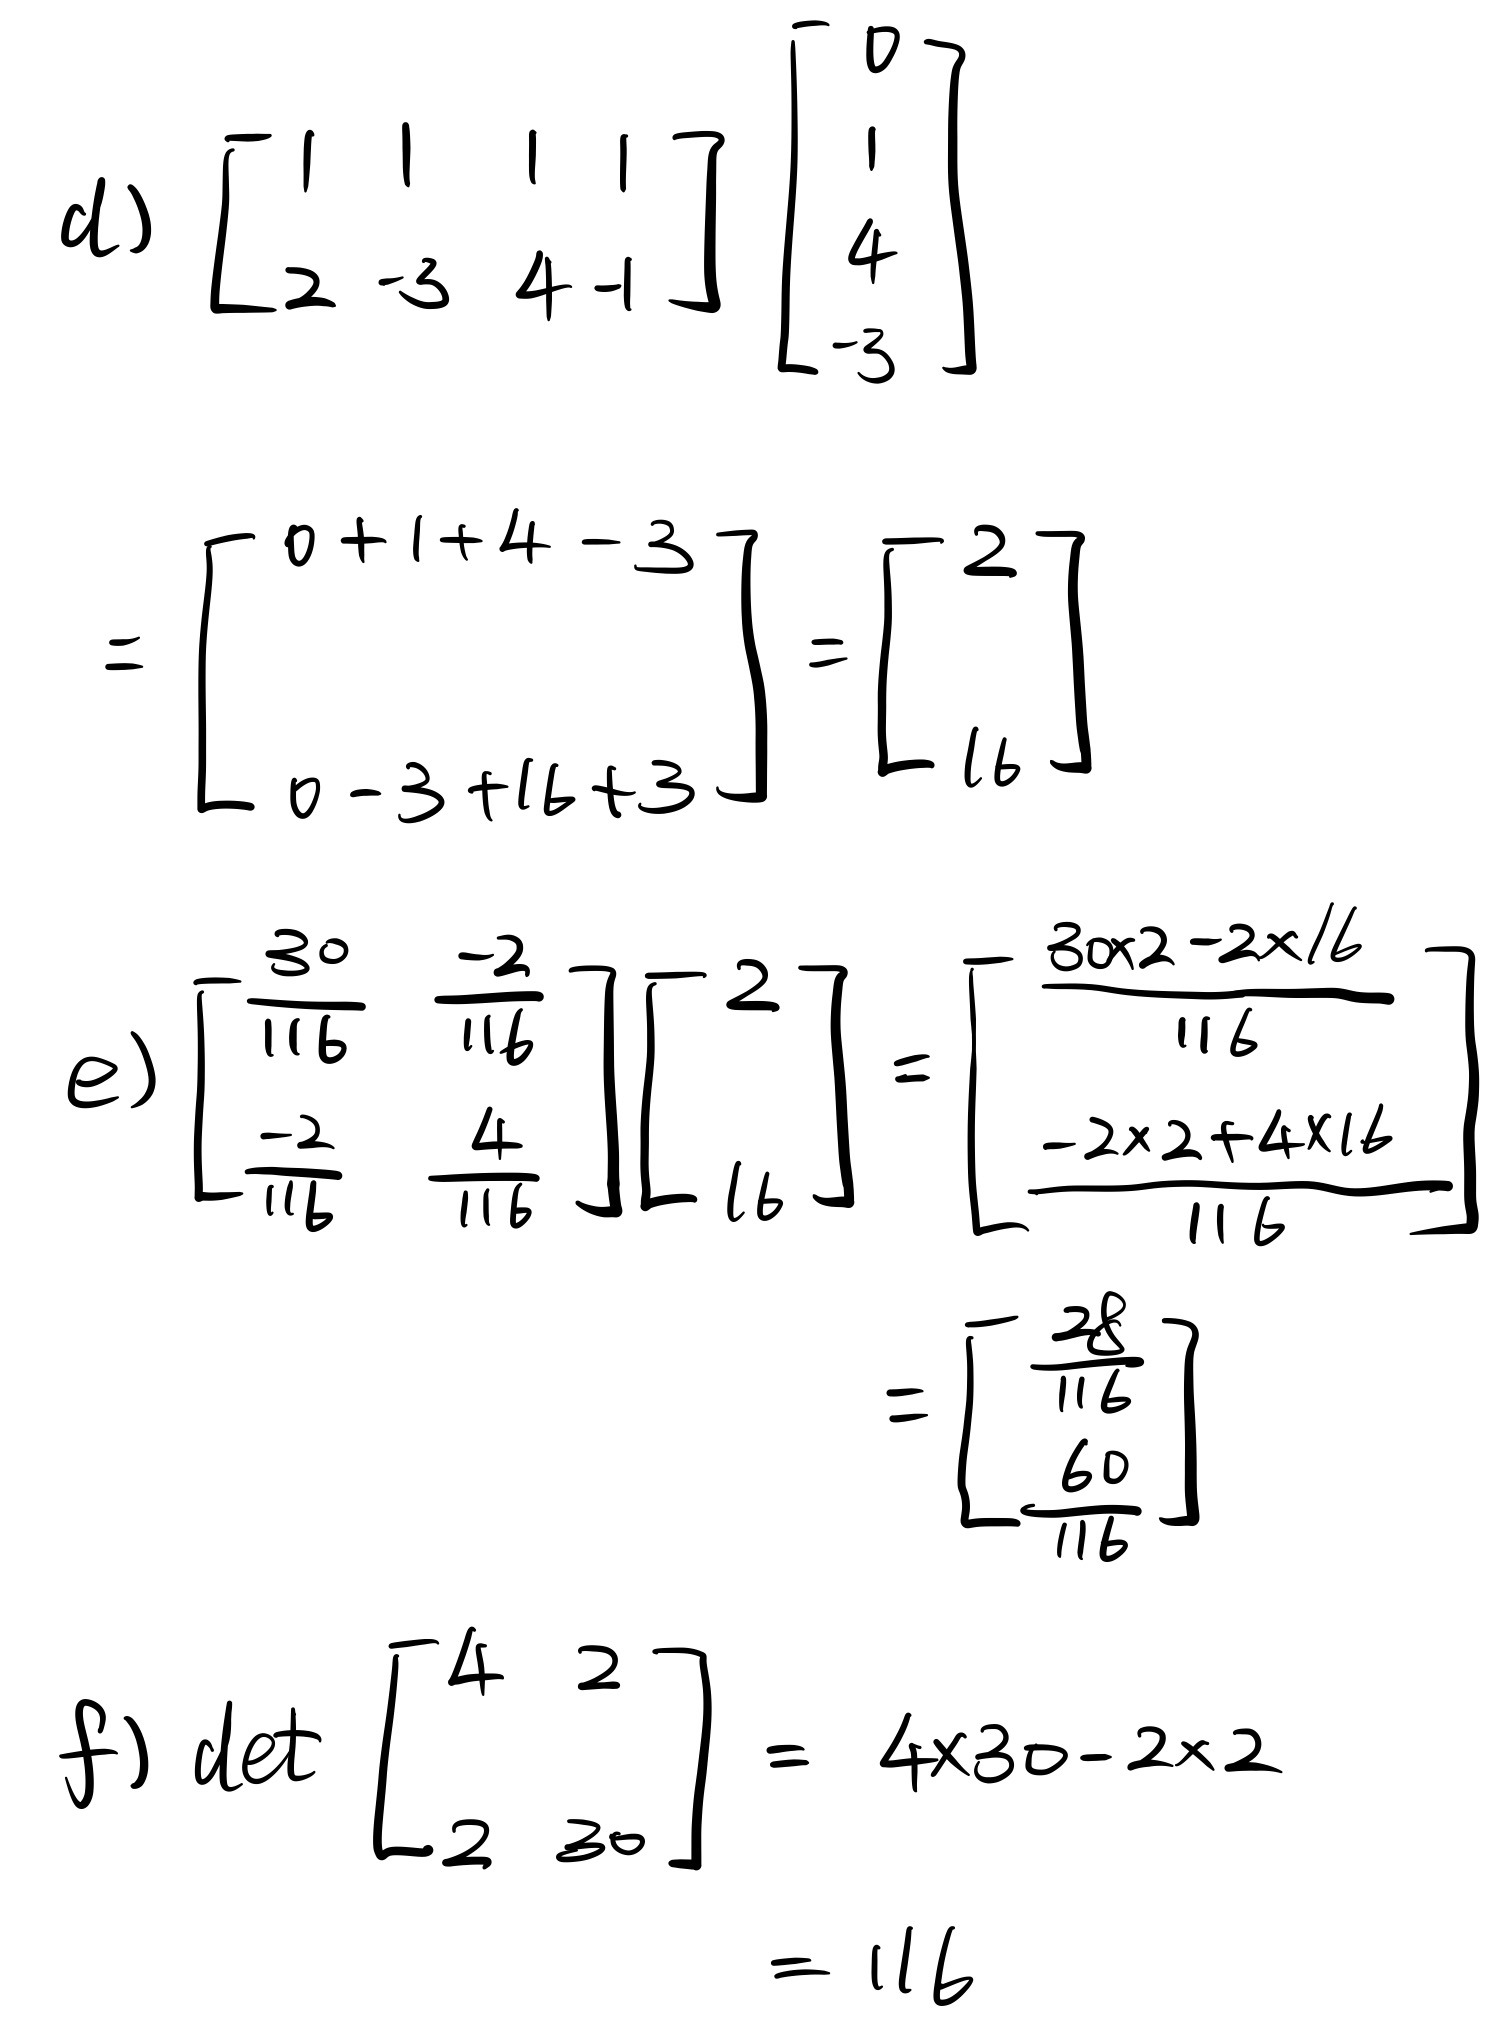 d) [ 1 1 1 1 ; 2 -3 4 -1 ] [ 0 ; 1 ; 4 ; -3 ]
= [ 0 + 1 + 4 - 3 ; 0 - 3 + 16 + 3 ] = [ 2 ; 16 ]
e) [ 30/116 -2/116 ; -2/116 4/116 ] [ 2 ; 16 ] = [ (30×2 - 2×16)/116 ; (-2×2 + 4×16)/116 ]
= [ 28/116 ; 60/116 ]
f) det [ 4 2 ; 2 30 ] = 4×30 - 2×2
= 116